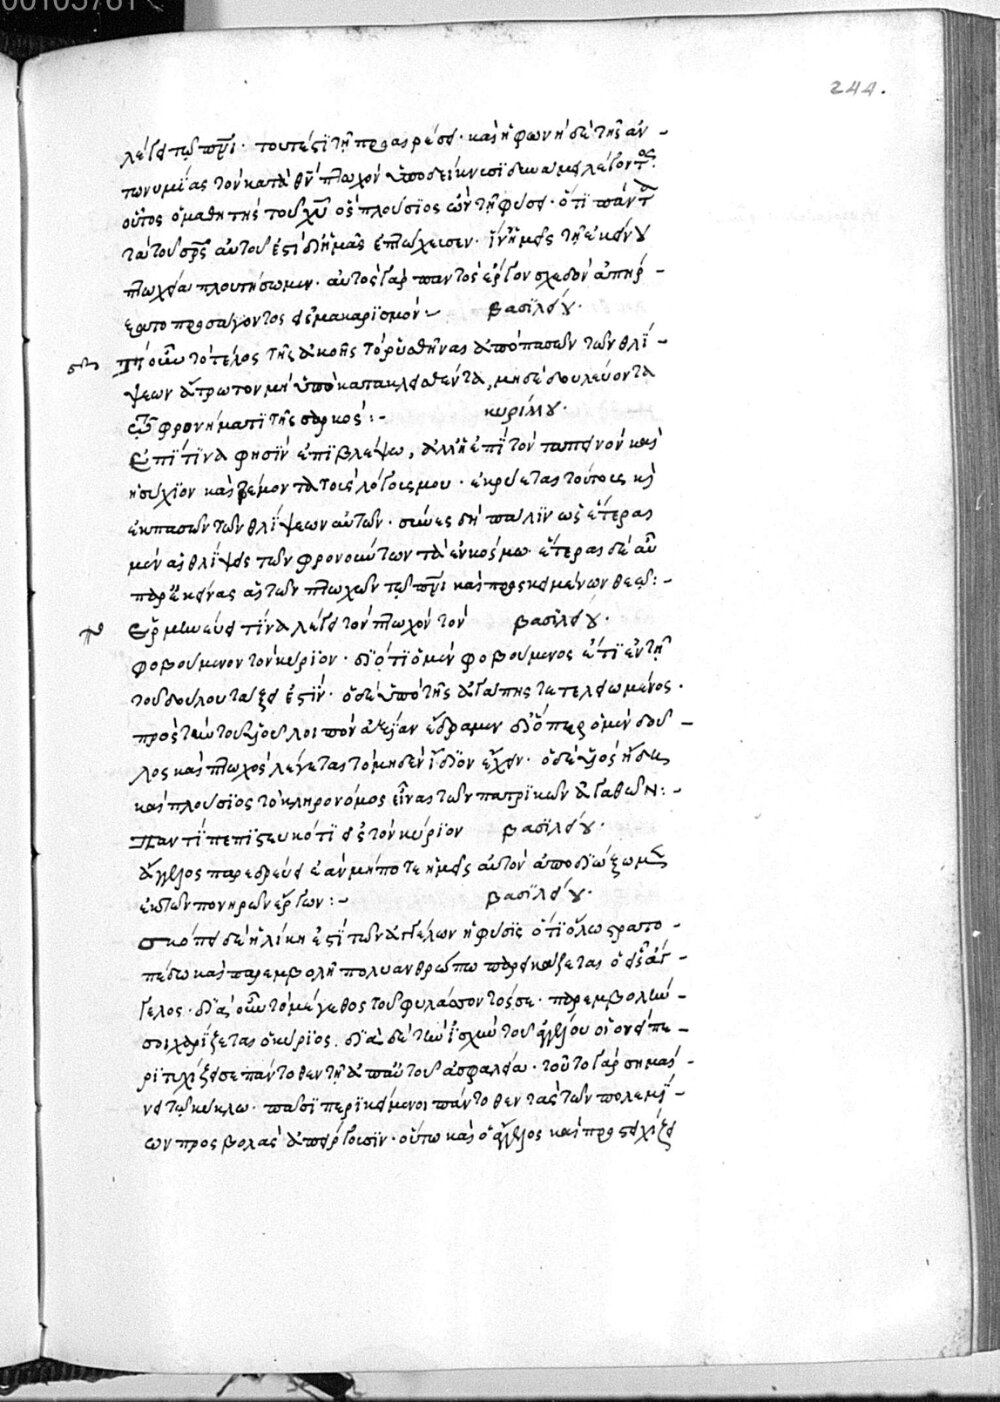 00105761
244.
λέγει τῷ πνι· τουτέστι τῇ προαιρέσει· καὶ ἡ φωνὴ δὲ τῆς ἀν-
τωνυμίας τὸν κατὰ θν πτωχὸν ὑποδείκνυσι λέγοντος·
οὗτος ὁ μαθητὴς τοῦ χυ ὃς πλούσιος ὢν τῇ φύσει· ὅτι πάντα
τὰ τοῦ πρς αὐτοῦ ἐστὶ δι' ἡμᾶς ἐπτώχευσεν· ἵν' ἡμεῖς τῇ ἐκείνου
πτωχεία πλουτήσωμεν· αὐτὸς γὰρ παντὸς ἔργου σχεδὸν ἀπήρ-
ξατο προσάγοντος εἰς μακαρισμόν:- βασιλείου·
Τί οὖν τὸ τέλος τῆς ἀκοῆς τὸ ῥυσθῆναι ἀπὸ πασῶν τῶν θλί-
ψεων ἄτρωτον μὴ ὑποκατακλεισθέντα, μηδὲ δουλεύοντα
τῷ φρονήματι τῆς σαρκός:- κυρίλλου·
Ἐπὶ τίνα φησὶν ἐπιβλέψω, ἀλλ' ἢ ἐπὶ τὸν ταπεινὸν καὶ
ἡσύχιον καὶ τρέμοντα τοὺς λόγους μου· ἐκρύεται τούτους κὶ
ἐκ πασῶν τῶν θλίψεων αὐτῶν· πάλιν ὡς ἕτεραι
μὲν αἱ θλίψεις τῶν φρονούντων τὰ ἐν κόσμω· ἕτεραι δὲ αὖ
παρ' ἐκείνας αἱ τῶν πτωχῶν τῷ πνι καὶ προσκειμένων θεῷ:-
Ἑρμηνεύει τίνα λέγει τὸν πτωχὸν τὸν βασιλείου·
φοβούμενον τὸν κύριον· διότι ὁ μὲν φοβούμενος ἔτι ἐν τῇ
τοῦ δούλου τάξει ἐστίν· ὁ δὲ ὑπὸ τῆς ἀγάπης τετελειωμένος·
πρὸς τὴν τοῦ υἱοῦ λοιπὸν ἀξίαν ἔδραμεν διόπερ ὁ μὲν δοῦ-
λος καὶ πτωχὸς λέγεται τὸ μηδὲν ἴδιον ἔχειν· ὁ δὲ υἱὸς ἤδη
καὶ πλούσιος τὸ κληρονόμος εἶναι τῶν πατρικῶν ἀγαθῶν:-
Παντὶ πεπιστευκότι εἰς τὸν κύριον βασιλείου·
ἄγγελος παρεδρεύει ἐὰν μήποτε ἡμεῖς αὐτὸν ἀποδιώξωμεν
ἐκ τῶν πονηρῶν ἔργων:- βασιλείου·
Σκόπει δὲ ἡλίκη ἐστὶ τῶν ἀγγέλων ἡ φύσις ὅτι ὅλω στρατο-
πέδω καὶ παρεμβολῇ πολυανθρώπω παρεικάζεται ὁ εἷς ἄγ-
γελος· διὰ οὖν τὸ μέγεθος τοῦ φυλάσσοντός σε· παρεμβολὴν-
σοι χαρίζεται ὁ κύριος· διὰ δὲ τὴν ἰσχὺν τοῦ ἀγγέλου οἱονεὶ πε-
ριτειχίζει σε πάντοθεν τῇ ἀπ' αὐτοῦ ἀσφαλεία· τοῦτο γὰρ σημαί-
νει τῷ κύκλω· περικείμενοι πάντοθεν τὰς τῶν πολεμί-
ων προσβολὰς ἀπείργουσιν· οὕτω καὶ ὁ ἄγγελος καὶ προστειχίζει